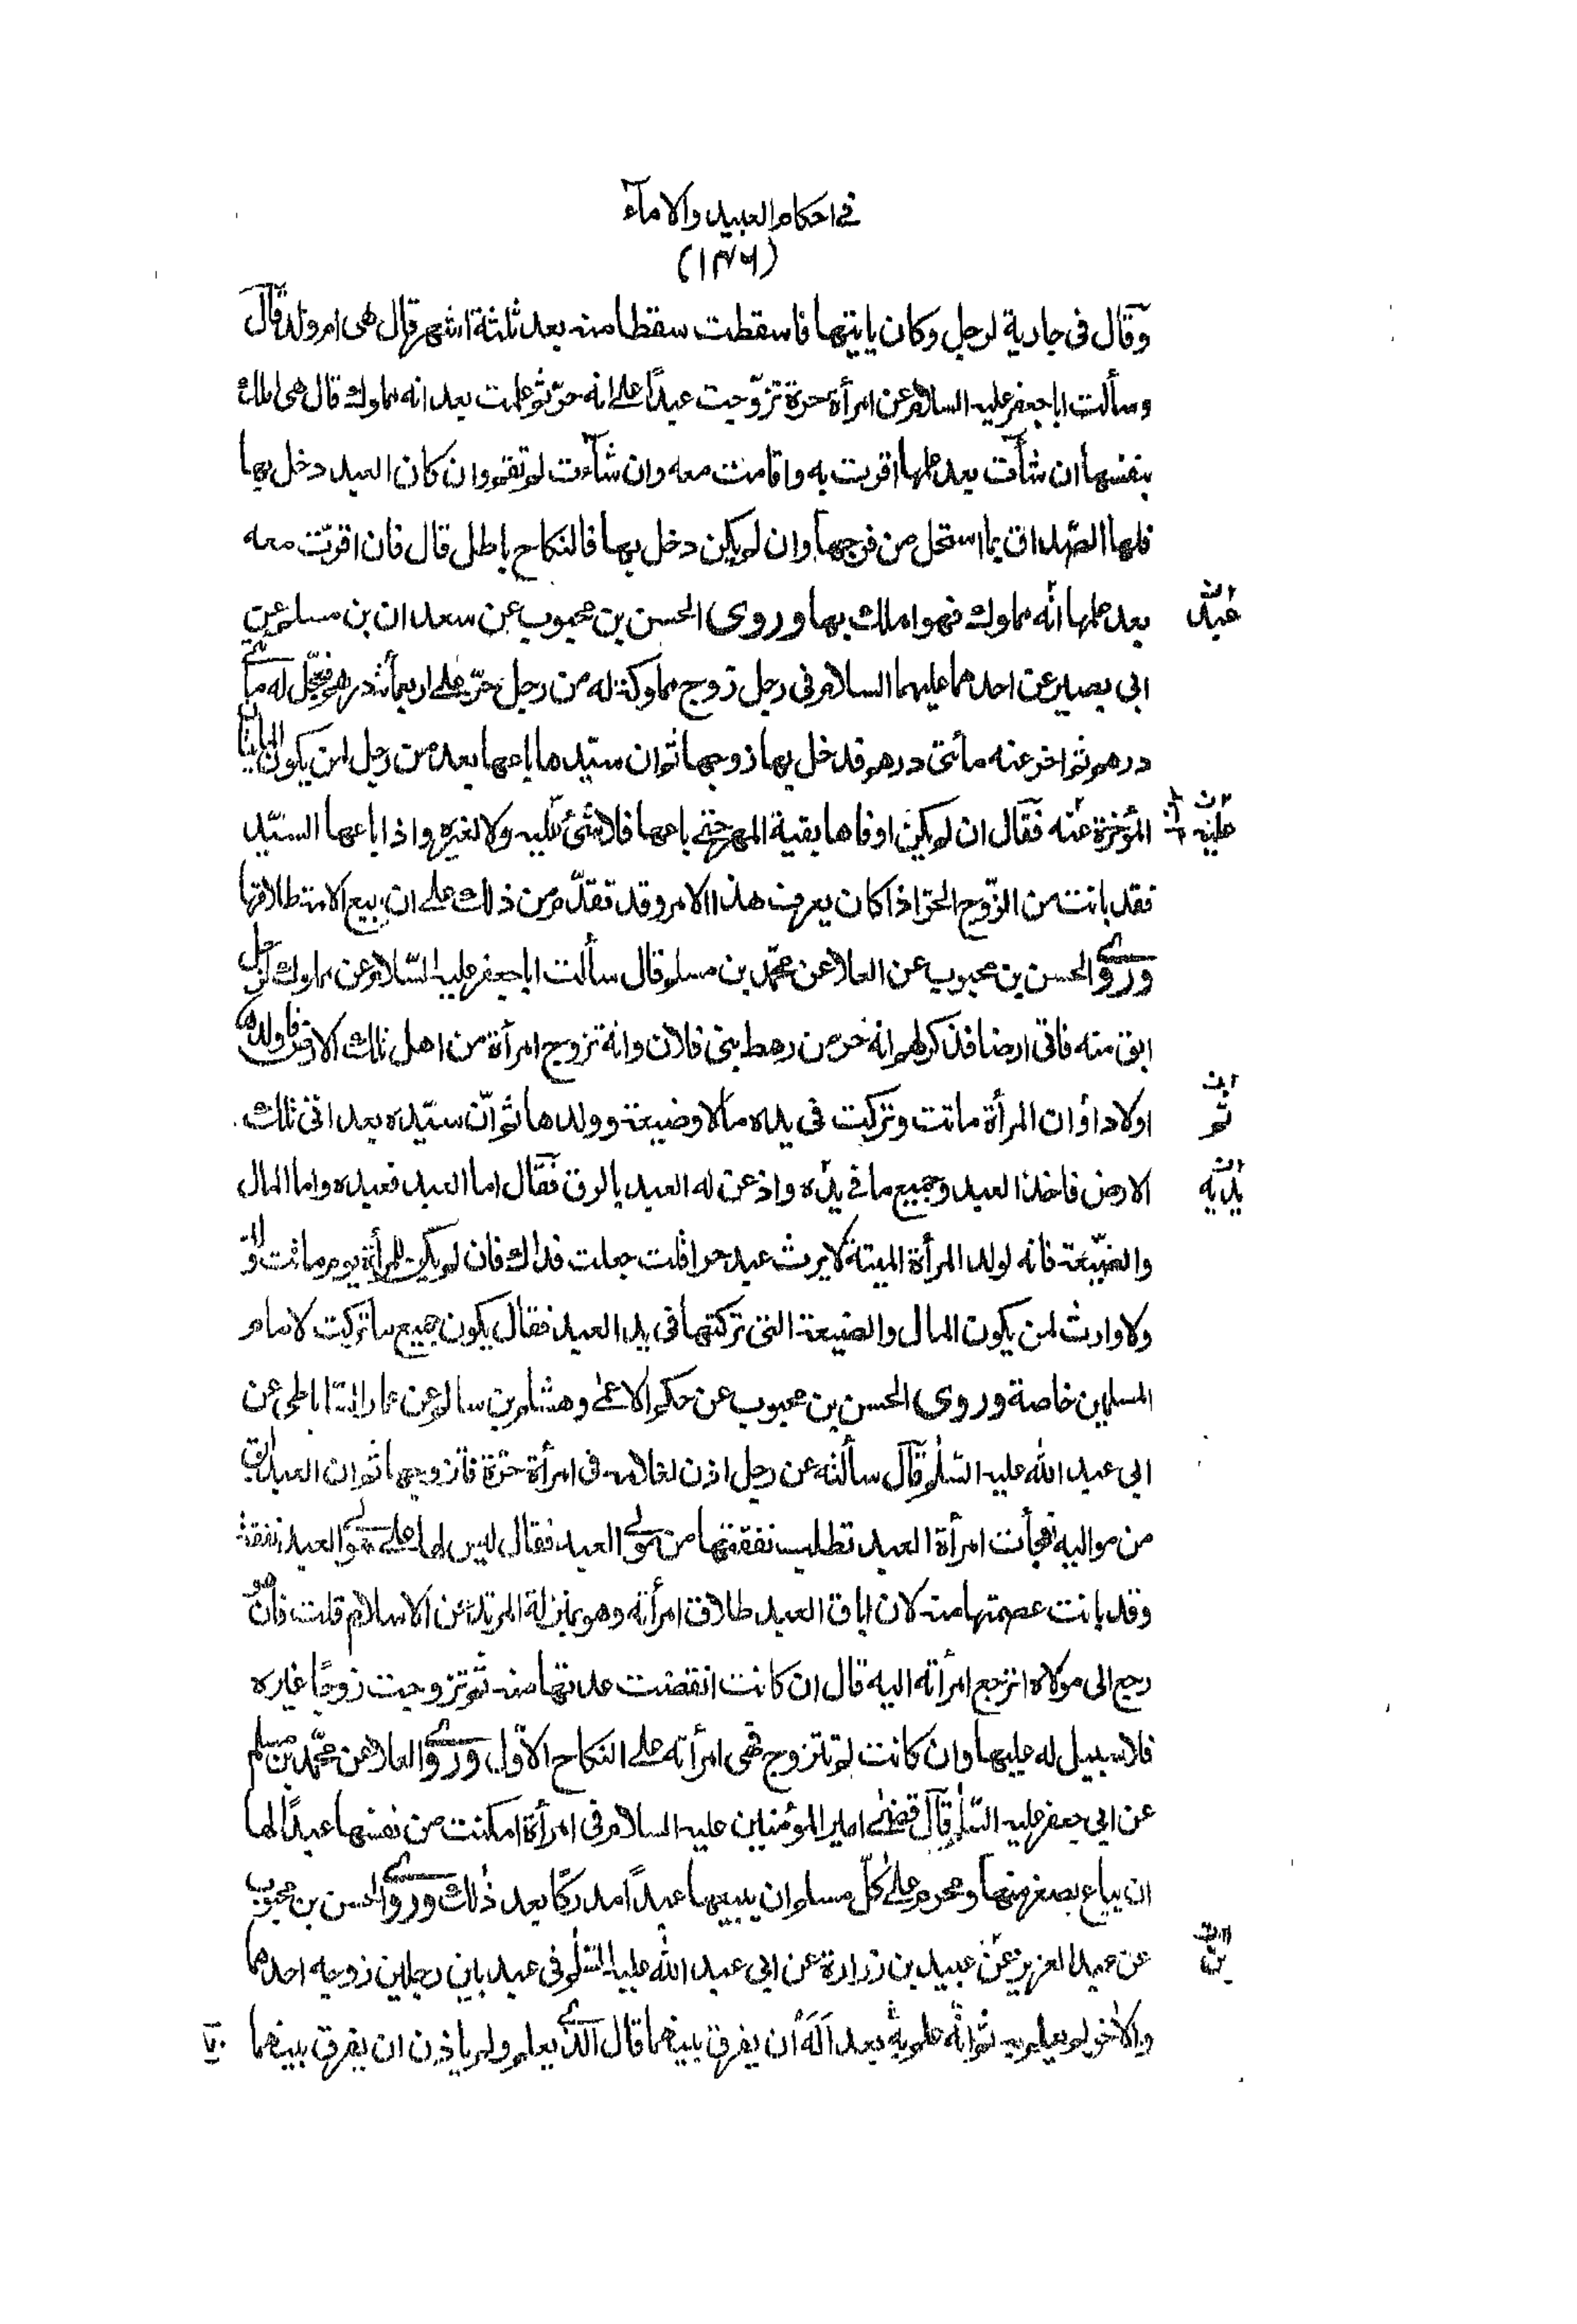 في احكام العبيد والاماء
(۱۴۶)
وقال فى جارية لرجل وكان ياتيها فاسقطت سقطا منه بعد ثلثة اشهر قال هى ام ولد قال
وسألت ابا جعفر عليه السلام عن امرأة حرة تزوّجت عبدًا على انه حرّ ثم علمت بعد انه مملوك قال هى املك
بنفسها ان شآءت بعد علمها اقرت به واقامت معه وان شآءت لم تقم وان كان العبد دخل بها
فلها الصّداق بما استحل من فرجها وان لم يكن دخل بها فالنكاح باطل قال فان اقرّت معه
بعد علمها انّه مملوك فهو املك بها وروى الحسن بن محبوب عن سعدان بن مسلم عن
ابى بصير عن احدهما عليهما السلام فى رجل زوج مملوكة له من رجل حرّ على اربعمأئة درهم فعجّل له مأتى
درهم ثم اخر عنه مأتى درهم فدخل بها زوجها ثم ان سيّدها باعها بعد من رجل لمن يكون المأتان
المؤخرة عنه فقال ان لم يكن اوفاها بقية المهر حتى باعها فلا شئ عليه ولا لغيره واذا باعها السيّد
فقد بانت من الزّوج الحرّ اذا كان يعرف هذا الامر وقد تقدّم من ذلك على ان بيع الامة طلاقها
وروى الحسن بن محبوب عن العلا عن محمّد بن مسلم قال سألت ابا جعفر عليه السّلام عن مملوك لرجل
ابق منه فاتى ارضا فذكر لهم انه حر من رهط بنى فلان وانه تزوج امرأة من اهل تلك الارض فاولدها
اولادا وان المرأة ماتت وتركت فى يده مالا وضيعة وولدها ثم انّ سيّده بعد اتى تلك
الارض فاخذ العبد وجميع ما في يده واذعن له العبد بالرق فقال اما العبد فعبده واما المال
والضيّعة فانه لولد المرأة الميتة لا يرث عبد حرا قلت جعلت فداك فان لم يكن للمرأة يوم ماتت ولد
ولا وارث لمن يكون المال والضيعة التى تركتها فى يد العبد فقال يكون جميع ما تركت لامام
المسلمين خاصة وروى الحسن بن محبوب عن حكم الاعمى وهشام بن سالم عن عمار الساباطى عن
ابى عبد الله عليه السّلم قال سألته عن رجل اذن لغلامه فى امرأة حرّة فتزوجها ثم ان العبد ابق
من مواليه فجأت امرأة العبد تطلب نفقتها من مولى العبد فقال ليس لها على مولى العبد نفقة
وقد بانت عصمتها منه لان اباق العبد طلاق امرأته وهو بمنزلة المرتد عن الاسلام قلت فان هو
رجع الى مولاه اترجع امرأته اليه قال ان كانت انقضت عدتها منه ثم تزوجت زوجًا غيره
فلا سبيل له عليها وان كانت لم تتزوج فهى امرأته على النكاح الاوّل وروى العلا عن محمّد بن مسلم
عن ابى جعفر عليه السّلم قال قضى امير المؤمنين عليه السلام فى امرأة امكنت من نفسها عبدًا لها
ان يباع بصغر منها ومحرم على كلّ مسلم ان يبيعها عبدًا مدركًا بعد ذلك وروى الحسن بن محبوب
عن عبد العزيز عن عبيد بن زرارة عن ابى عبد الله عليه السّلم فى عبد بين رجلين زوجه احدهما
والاخر لم يعلم به ثم انه علم به بعد اَلَهُ ان يفرق بينهما قال للّذى يعلم ولم ياذن ان يفرق بينهما
عبد الله
عليه
ثم
يديه
بن